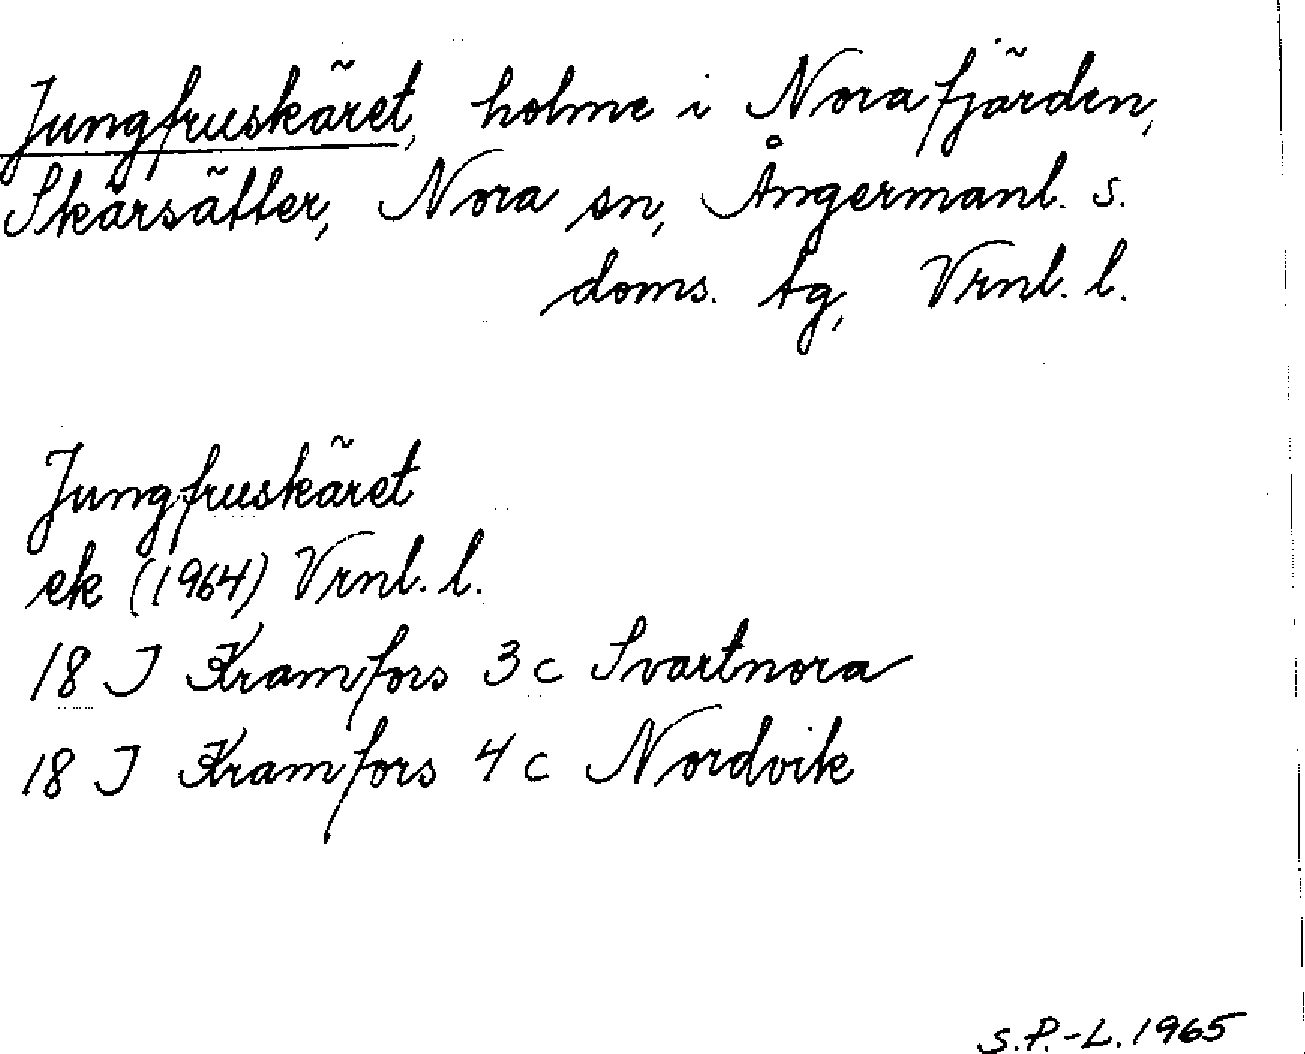 Jungfruskäret, holme i Norafjärden,
Skärsätter, Nora sn, Ångermanl. s.
doms. tg, Vrnl. l.
Jungfruskäret
ek (1964) Vrnl. l.
18 J Kramfors 3 c Svartnora
18 J Kramfors 4 c Nordvik
S.P.-L. 1965